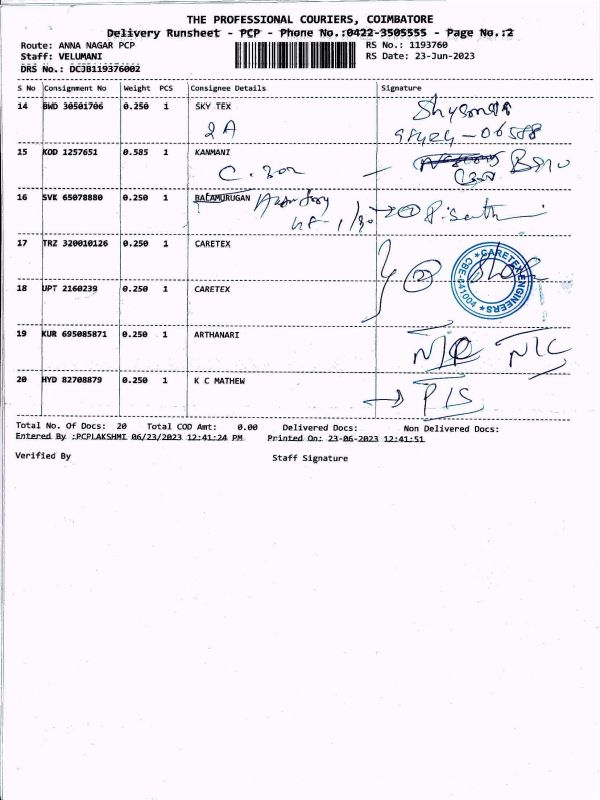 THE PROFESSIONAL COURIERS, COIMBATORE
Delivery Runsheet - PCP - Phone No.:0422-3505555 - Page No.:2
Route: ANNA NAGAR PCP RS No.: 1193760
Staff: VELUMANI RS Date: 23-Jun-2023
DRS No.: DCJB119376002
S No Consignment No Weight PCS Consignee Details Signature
14 BWD 30501706 0.250 1 SKY TEX
2A
15 KOD 1257651 0.585 1 KANMANI
16 SVK 65078880 0.250 1 BALAMURUGAN
17 TRZ 320010126 0.250 1 CARETEX
CARETEX ENGINEERS * CBE-641004 *
18 UPT 2160239 0.250 1 CARETEX
19 KUR 695085871 0.250 1 ARTHANARI
20 HYD 82708879 0.250 1 K C MATHEW
P/S
Total No. Of Docs: 20 Total COD Amt: 0.00 Delivered Docs: Non Delivered Docs:
Entered By :PCPLAKSHMI 06/23/2023 12:41:24 PM Printed On: 23-06-2023 12:41:51
Verified By Staff Signature